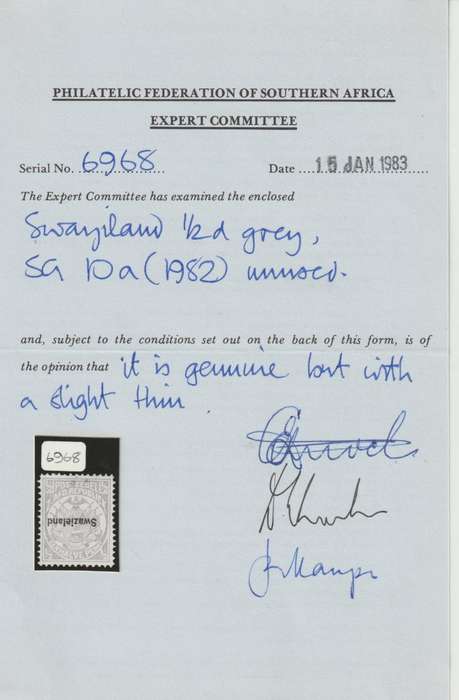 PHILATELIC FEDERATION OF SOUTHERN AFRICA
EXPERT COMMITTEE
Serial No. 6968 Date 15 JAN 1983
The Expert Committee has examined the enclosed
Swaziland ½d grey,
SG 10a (1982) unused.
and, subject to the conditions set out on the back of this form, is of
the opinion that it is genuine but with
a slight thin.
6968
Swazieland